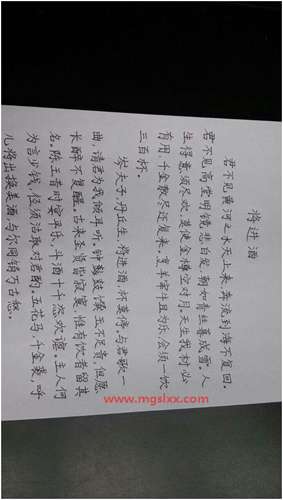 将进酒
君不见黄河之水天上来,奔流到海不复回。
君不见高堂明镜悲白发,朝如青丝暮成雪。人
生得意须尽欢,莫使金樽空对月。天生我材必
有用,千金散尽还复来。烹羊宰牛且为乐,会须一饮
三百杯。
岑夫子,丹丘生,将进酒,杯莫停。与君歌一
曲,请君为我倾耳听。钟鼓馔玉不足贵,但愿
长醉不复醒。古来圣贤皆寂寞,惟有饮者留其
名。陈王昔时宴平乐,斗酒十千恣欢谑。主人何
为言少钱,径须沽取对君酌。五花马、千金裘,呼
儿将出换美酒,与尔同销万古愁。
www.mgslxx.com